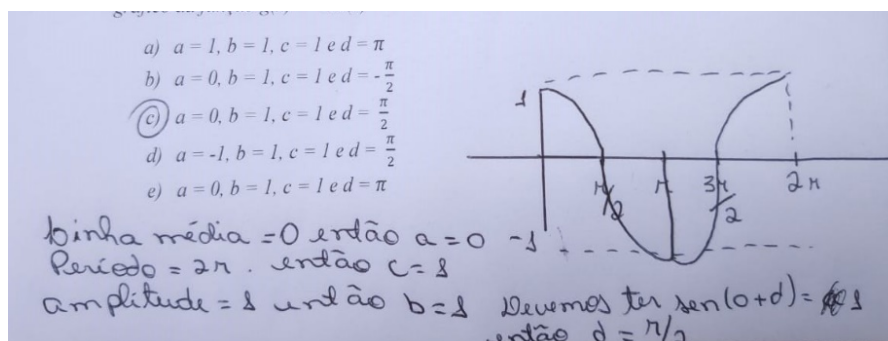 a) a = 1, b = 1, c = 1 e d = π
b) a = 0, b = 1, c = 1 e d = -π/2
c) a = 0, b = 1, c = 1 e d = π/2
d) a = -1, b = 1, c = 1 e d = π/2
e) a = 0, b = 1, c = 1 e d = π
1
π/2 π 3π/2 2π
-1
Linha média = 0 então a = 0
Período = 2π. então c = 1
amplitude = 1 então b = 1
Devemos ter sen(0+d) = 1
então d = π/2